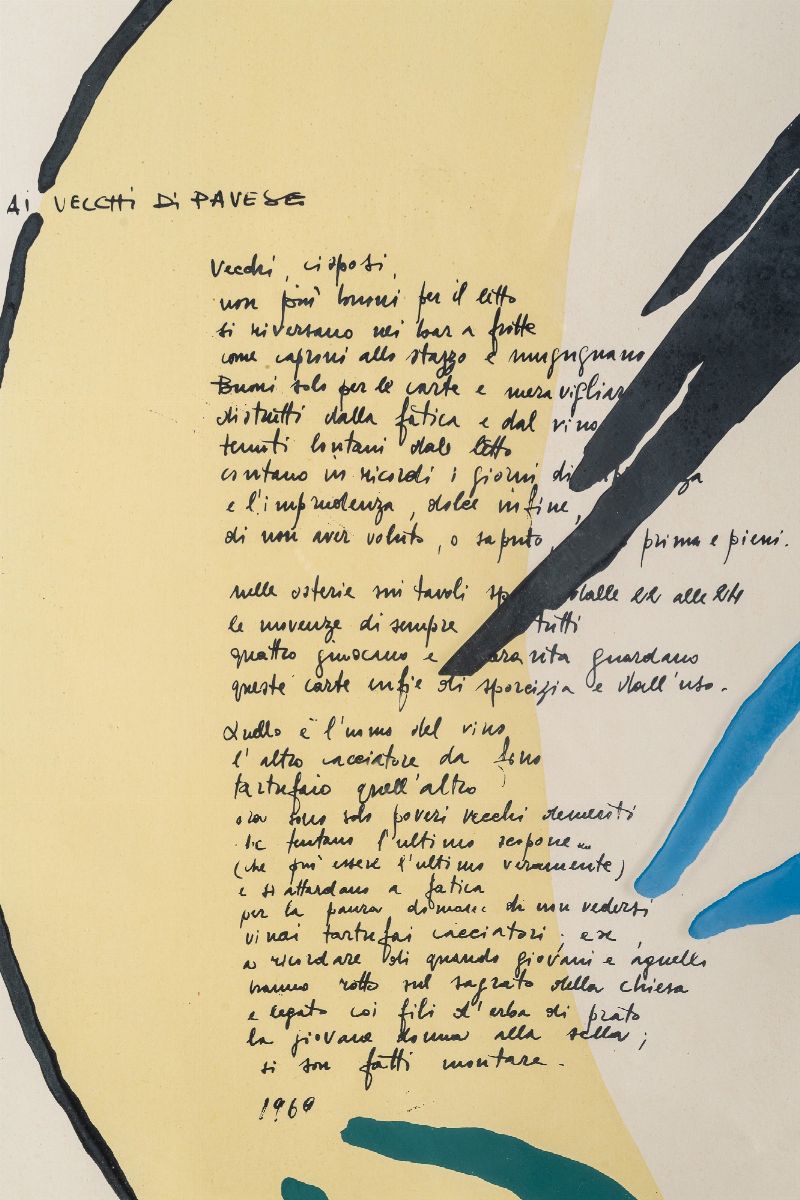 Ai VECCHi Di PAVESE
Vecchi, cisposi,
non più buoni per il letto
si riversano nei bar a frotte
come caproni allo stazzo e mugugnano
Buoni solo per le carte e meravigliar
distrutti dalla fatica e dal vino
tenuti lontani dal letto
contano in ricordi i giorni di
e l'imprudenza, dolce infine,
di non aver voluto, o saputo, prima e pieni.
nelle osterie sui tavoli dalle 22 alle 24
le movenze di sempre tutti
quattro giuocano e guardano
queste carte enfie di sporcizia e dall'uso.
Quello è l'uomo del vino
l'altro cacciatore da
tartufaio quell'altro
ora sono solo poveri vecchi dementi
tentano l'ultimo scopone...
(che può essere l'ultimo veramente)
e si attardano a fatica
per la paura domani di non vedersi
vinai tartufai cacciatori, ex,
a ricordare di quando giovani e
hanno rotto sul sagrato della chiesa
e legato coi fili d'erba di prato
la giovane donna alla sella;
si son fatti montare.
1969